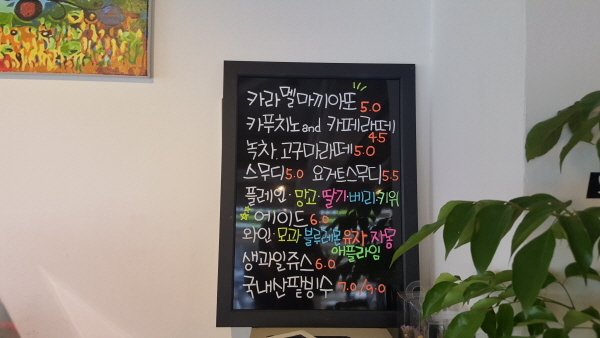 카라멜마끼아또 5.0
카푸치노 and 카페라떼
4.5
녹차.고구마라떼 5.0
스무디 5.0 요거트스무디 5.5
플레인·망고·딸기·베리·키위
에이드 6.0
와인·모과·블루레몬·유자·자몽
애플라임
생과일쥬스 6.0
국내산팥빙수 7.0/9.0